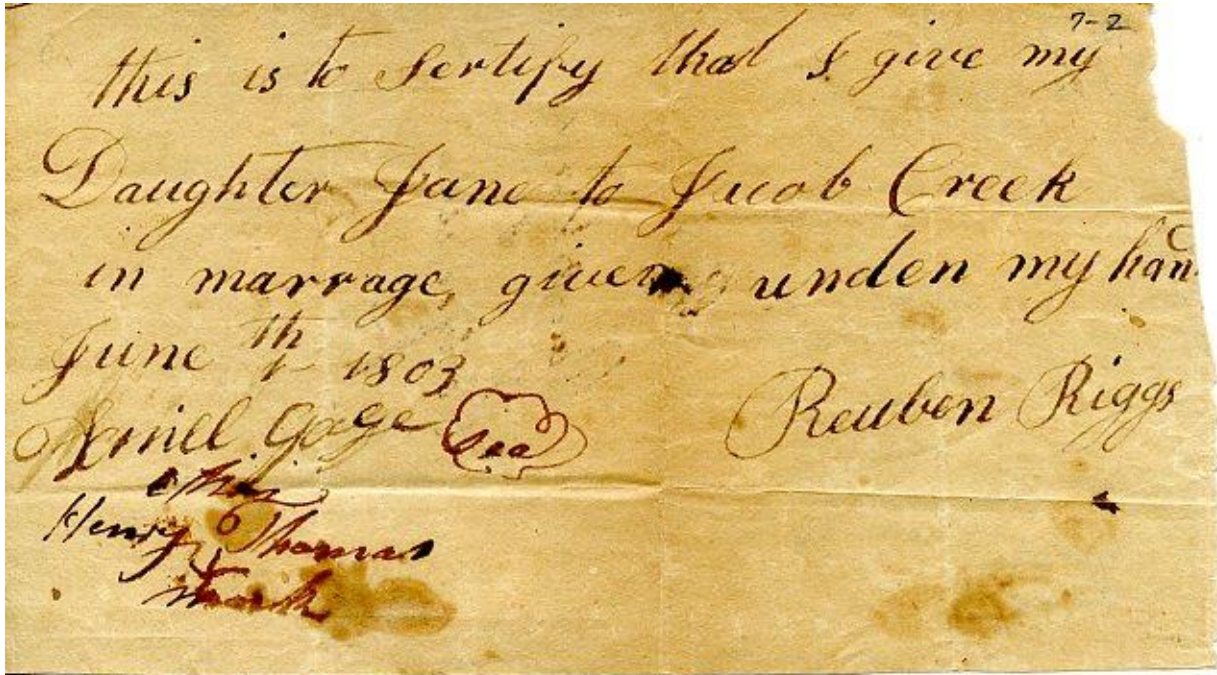 7-2
this is to Sertify that I give my
Daughter Jane to Jacob Creek
in marrage, given under my han
June th 1803
Daniel Gage Seal
Reuben Riggs
his
Henry Thomas
mark